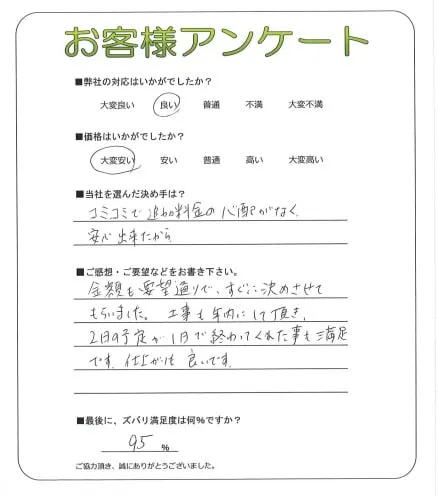 お客様アンケート
■弊社の対応はいかがでしたか？
大変良い 良い 普通 不満 大変不満
■価格はいかがでしたか？
大変安い 安い 普通 高い 大変高い
■当社を選んだ決め手は？
コミコミで追加料金の心配がなく、
安心出来たから
■ご感想・ご要望などをお書き下さい。
金額も要望通りで、すぐに決めさせて
もらいました。工事も年内にして頂き、
2日の予定が1日で終わってくれた事も満足
です。仕上がりも良いです。
■最後に、ズバリ満足度は何％ですか？
95 %
ご協力頂き、誠にありがとうございました。